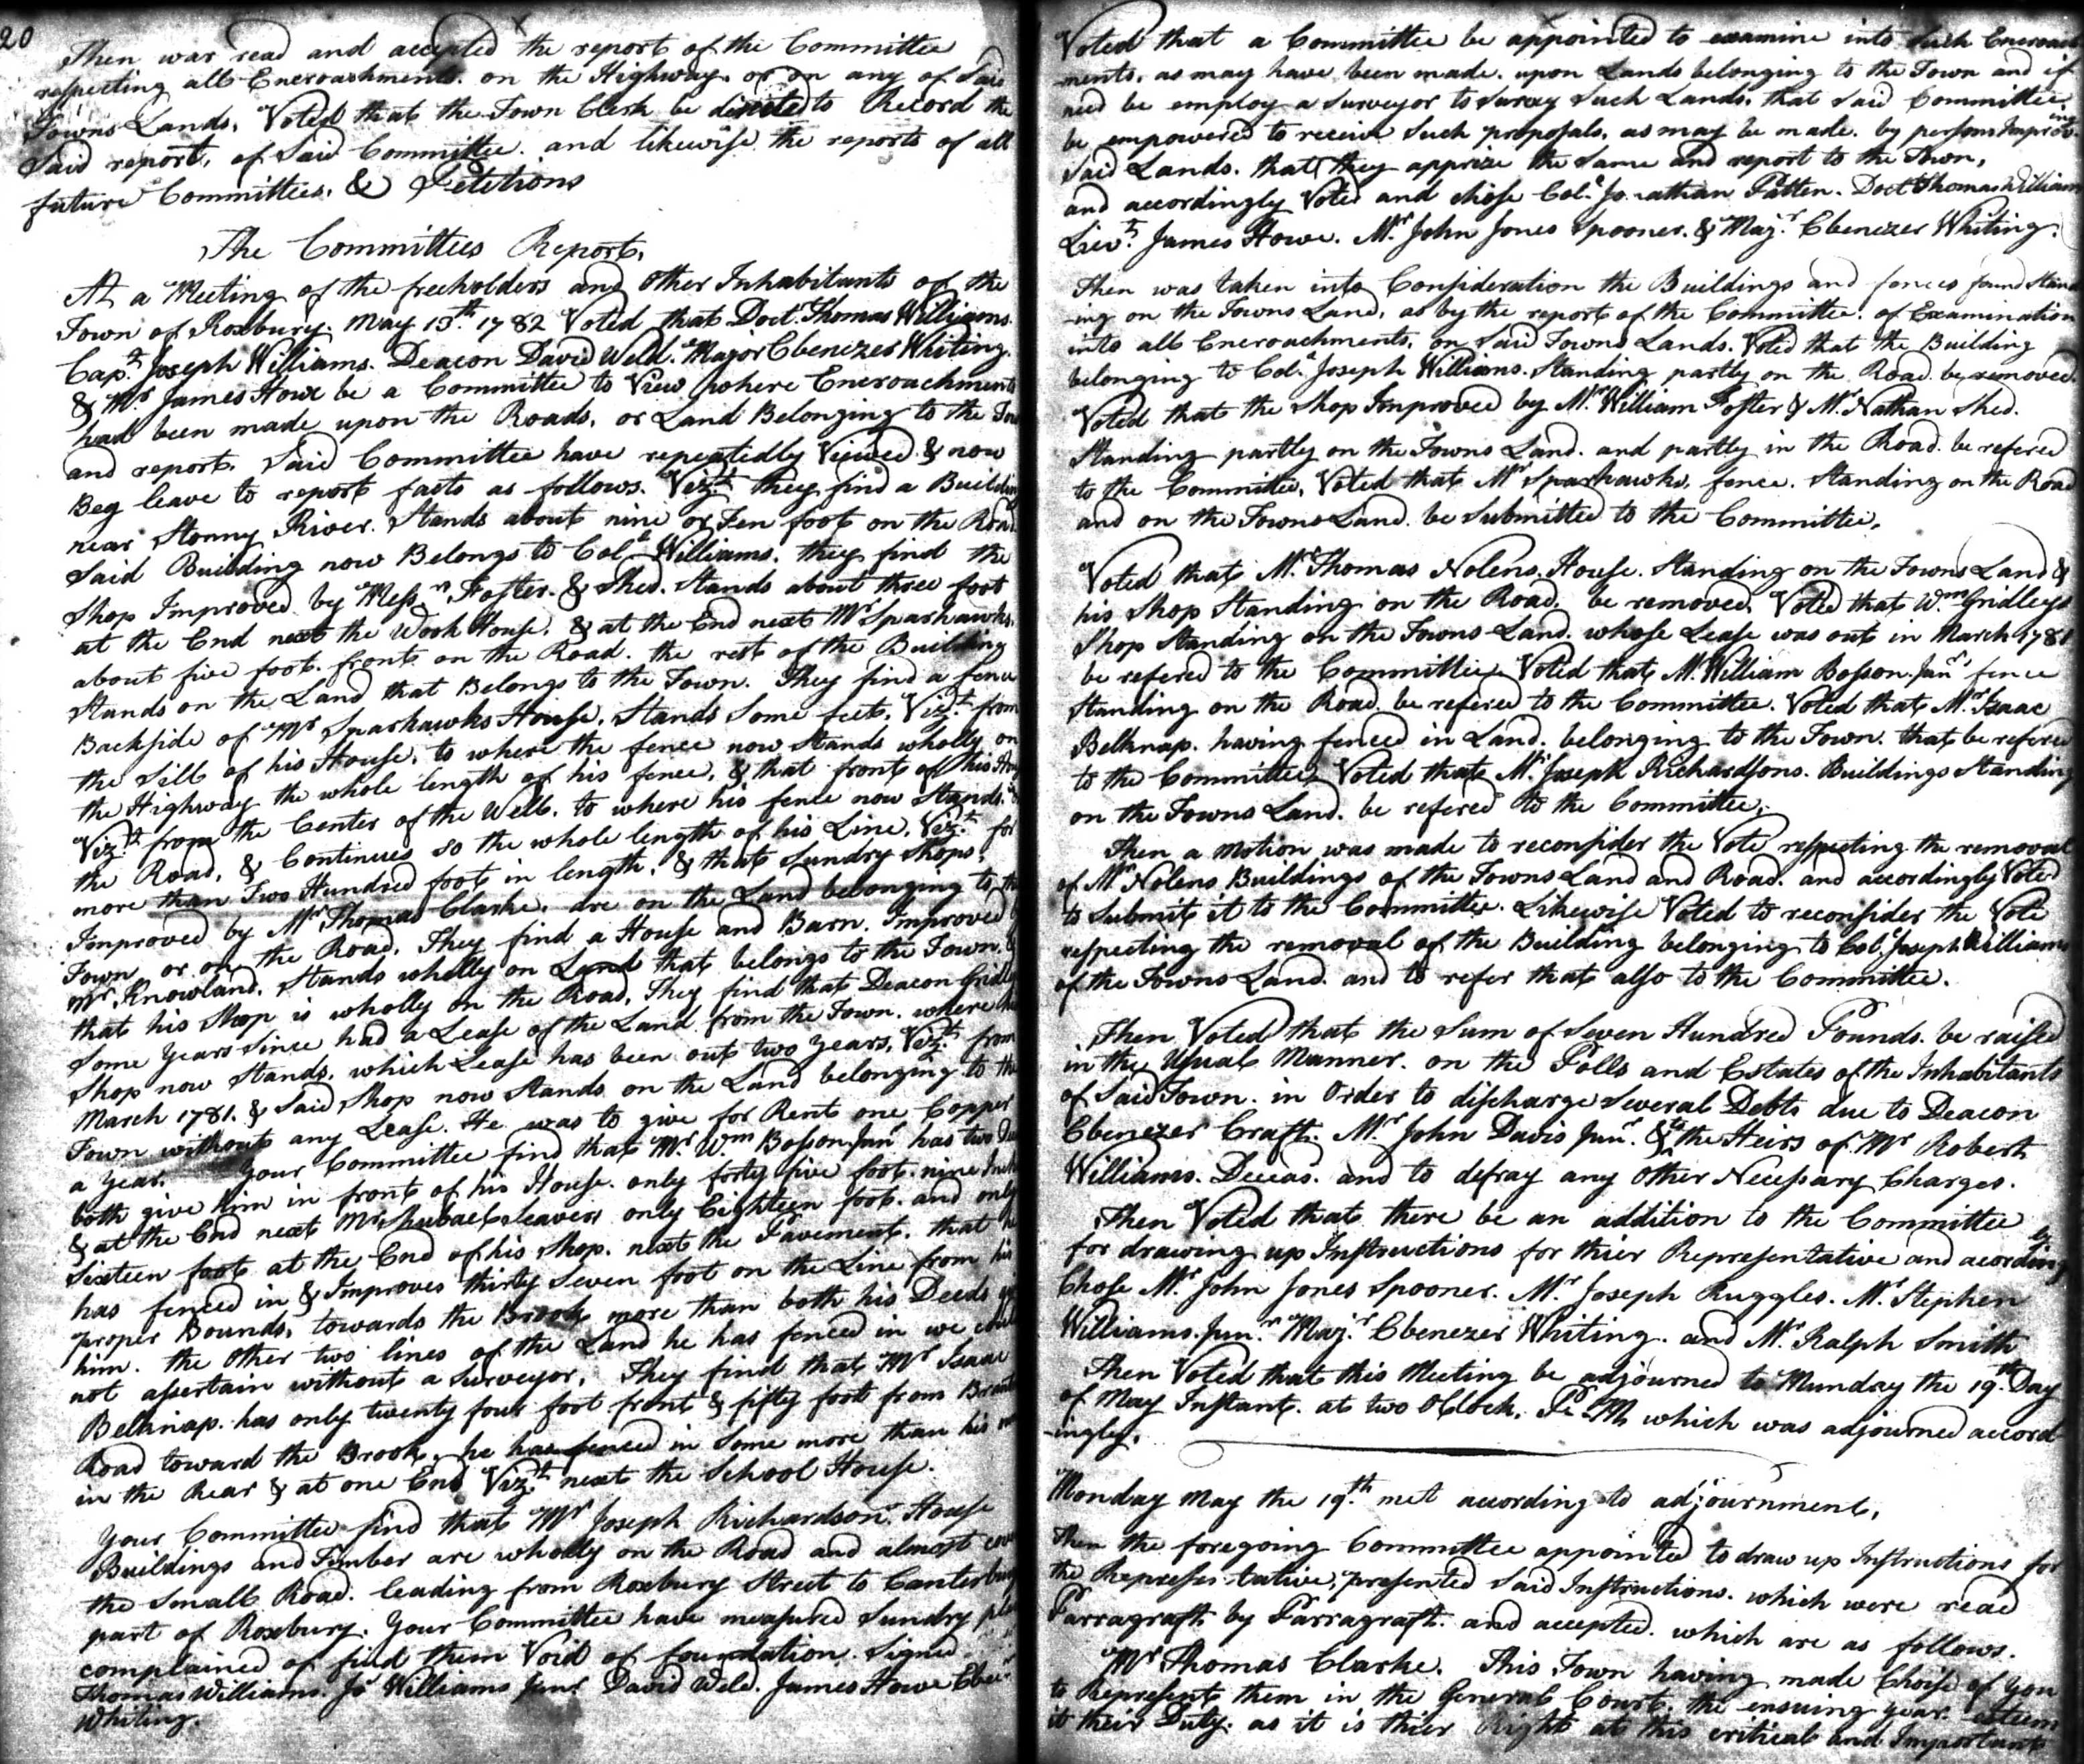 20
Then was read and accepted the report of the Committee
respecting all Encroachments. on the Highway. or on any of Said
Towns Lands. Voted that the Town Clerk be directed to Record the
Said report, of Said Committee. and likewise the reports of all
future Committees. & Petitions
The Committees Report.
At a Meeting of the freeholders and other Inhabitants of the
Town of Roxbury. May 13th. 1782 Voted that Doct. Thomas Williams.
Capt. Joseph Williams. Deacon David Weld. Major Ebenezer Whiting.
& Mr James Howe be a Committee to View where Encroachments
had been made upon the Roads, or Land Belonging to the
and report. Said Committee have repeatedly Viewed & now
Beg leave to report facts as follows. Vizt. they find a Building
near Stonny River. Stands about nine or Ten foot on the Road
Said Building now Belongs to Colo. Williams. they find the
Shop Improved by Messrs. Foster. & Shed. Stands about three foot
at the End next the Work House. & at the End next Mr Sparhawks.
about five foot. front on the Road. the rest of the Building
Stands on the Land that Belongs to the Town. They find a fence
Backside of Mr Sparhawks House. Stands Some feet. Vizt. from
the Sill of his House, to where the fence now Stands wholly on
the Highway the whole length of his fence, & that front of his
Vizt. from the Center of the Well. to where his fence now Stands.
the Road, & Continues so the whole length of his Line. Vizt. for
more than Two Hundred foot in length. & that Sundry Shops.
Improved by Mr Thomas Clarke. are on the Land belonging to the
Town or on the Road. They find a House and Barn. Improved
Mr. Knowland. Stands wholly on Land that belongs to the Town.
that his Shop is wholly on the Road. They find that Deacon Gridley
Some Years Since had a Lease of the Land from the Town. where
Shop now Stands, which Lease has been out two years. Vizt. from
March 1781. & Said Shop now Stands on the Land belonging to the
Town without any Lease. He was to give for Rent one Copper
a Year. Your Committee find that Mr. Wm Bosson Junr has two
both give him in front of his House. only forty five foot. nine
& at the End next Mr. Shubael Seavers only Eighteen foot. and only
Sixteen foot at the End of his Shop. next the Pavement. that he
has fenced in & Improves thirty Seven foot on the Line from his
proper Bounds, towards the Brook more than both his Deeds
him. the Other two lines of the Land he has fenced in we could
not assertain without a Surveyor. They find that Mr Isaac
Belknap. has only twenty four foot front & fifty foot from
Road toward the Brook. he has fenced in Some more than his
in the Rear & at one End Vizt. next the School House.
Your Committee find that Mr Joseph Richardsons. House
Buildings and Timber are wholly on the Road and almost
the Small Road. leading from Roxbury Street to Canterbury
part of Roxbury. Your Committee have measured Sundry
complained of find them Void of foundation. Signed
Thomas Williams. Jos Williams Junr David Weld. James Howe Ebenr
Whiting.
Voted that a Committee be appointed to examine into Such Encroach
-ments. as may have been made. upon Lands belonging to the Town and if
need be employ a Surveyor to Survey Such Lands. that Said Committee.
be empowered to receive Such proposals, as may be made. by persons Improving
Said Lands. that they apprize the Same and report to the Town,
and accordingly Voted and chose Colo. Jonathan Patten. Doct Thomas William
Lievt. James Howe. Mr. John Jones Spooner. & Majr. Ebenezer Whiting.
Then was taken into Consideration the Buildings and fences found Stand
-ing on the Towns Land. as by the report of the Committee. of Examination
into all Encroachments, on Said Towns Lands. Voted that the Building
belonging to Colo. Joseph Williams. Standing partly on the Road be removed.
Voted that the Shop Improved by Mr. William Foster & Mr. Nathan Shed.
Standing partly on the Towns Land. and partly in the Road. be refered
to the Committee. Voted that Mr Sparhawks. fence. Standing on the Road
and on the Towns Land. be Submitted to the Committee.
Voted that Mr. Thomas Nolens. House. Standing on the Towns Land &
his Shop Standing on the Road. be removed. Voted that Wm. Gridleys
Shop Standing on the Towns Land. whose Lease was out in March 1781
be refered to the Committee. Voted that Mr. William Bosson Junrs fence
Standing on the Road. be refered to the Committee. Voted that Mr. Isaac
Belknap. having fenced in Land. belonging to the Town. that be refered
to the Committee. Voted that Mr. Joseph Richardsons. Buildings Standing
on the Towns Land. be refered to the Committee.
Then a Motion was made to reconsider the Vote respecting the removal
of Mr Nolens Buildings of the Towns Land and Road. and accordingly Voted
to Submit it to the Committee. Likewise Voted to reconsider the Vote
respecting the removal of the Building belonging to Colo. Joseph Williams
of the Towns Land. and to refer that also to the Committee.
Then Voted that the Sum of Seven Hundred Pounds. be raised
in the Usual Manner. on the Polls and Estates of the Inhabitants
of Said Town. in Order to discharge Several Debts due to Deacon
Ebenezer Craft. Mr. John Davis Junr. & to the Heirs of Mr Robert
Williams. Deceas. and to defray any Other Necessary Charges.
Then Voted that there be an addition to the Committee
for drawing up Instructions for thier Representative and acordingly
Chose Mr. John Jones Spooner. Mr. Joseph Ruggles. Mr. Stephen
Williams. Junr. Majr. Ebenezer Whiting. and Mr. Ralph Smith
Then Voted that this Meeting be adjourned to Munday the 19th. Day
of May Instant. at two OClock. P. M. which was adjourned accord
-ingly.
Monday May the 19th. met according to adjournment,
Then the foregoing Committee appointed to draw up Instructions for
the Representative, presented Said Instructions. which were read
Parragraft by Parragraft. and accepted. which are as follows.
Mr Thomas Clarke. This Town having made Choise of You
to Represent them in the General Court. the ensuing year. esteem
it their Duty. as it is thier Right at this critical and Important